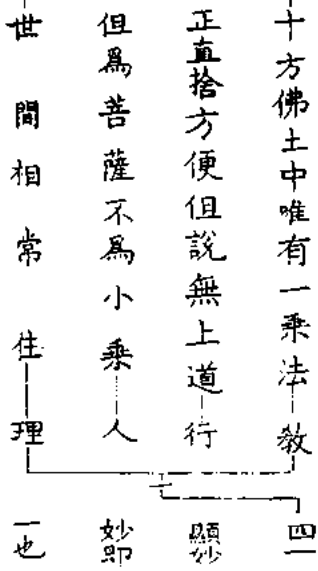 十方佛土中唯有一乘法教
正直捨方便但說無上道行
但爲菩薩不爲小乘人
世間相常住理
四一
顯妙
妙即
一也